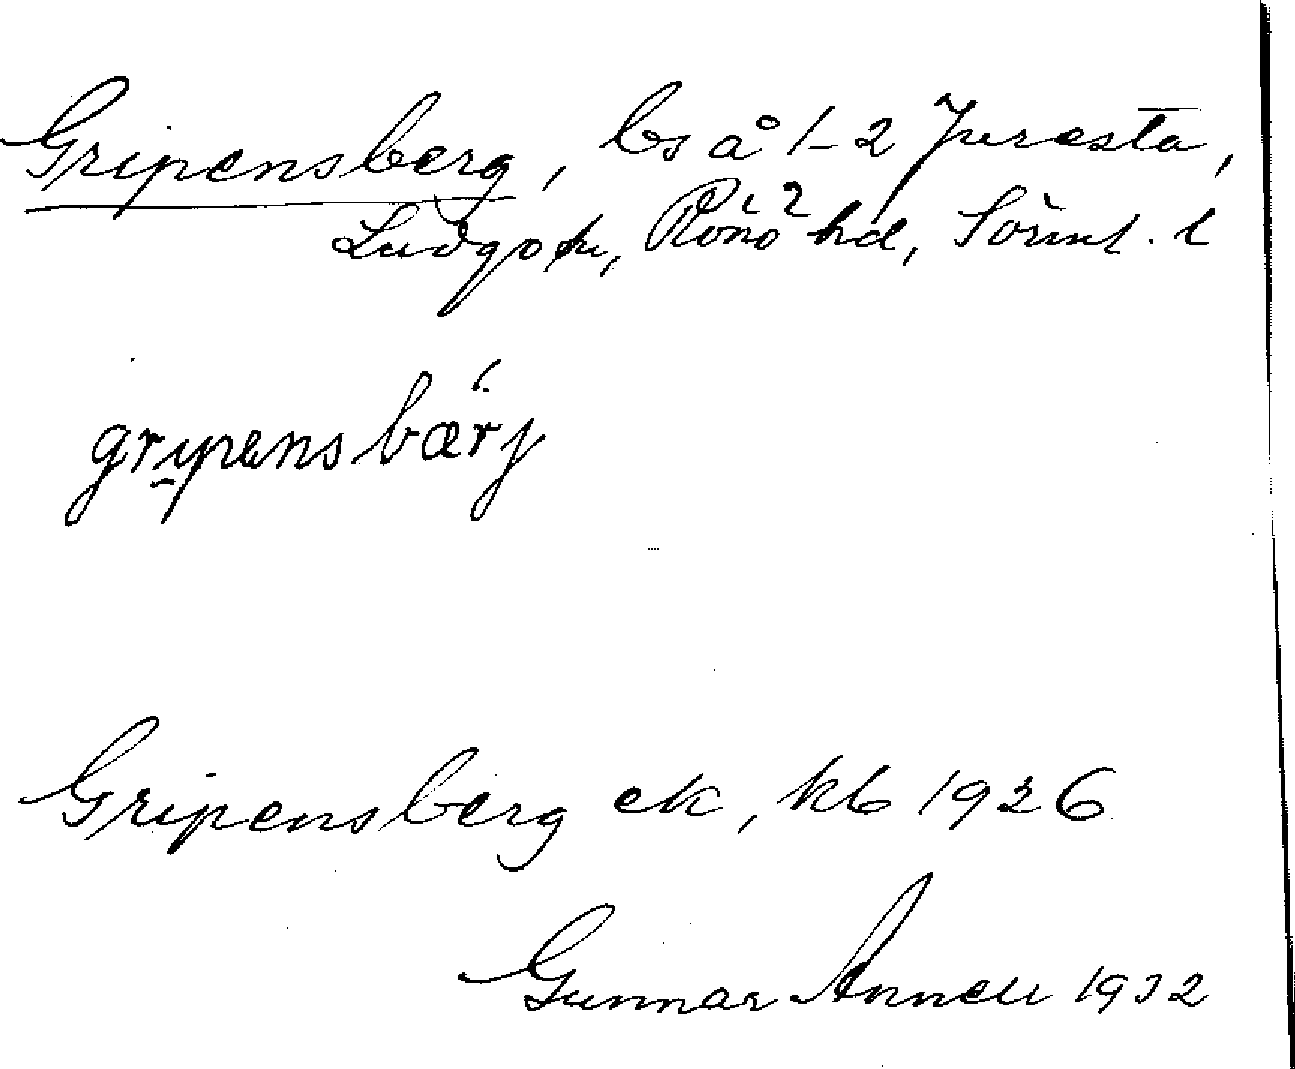 Gripensberg, bs å 1-2 Juresta,
Ludgo sn, Rönö hd, Sörml. l
gripensbärj
Gripensberg ek, kb 1926
Gunnar Annell 1932